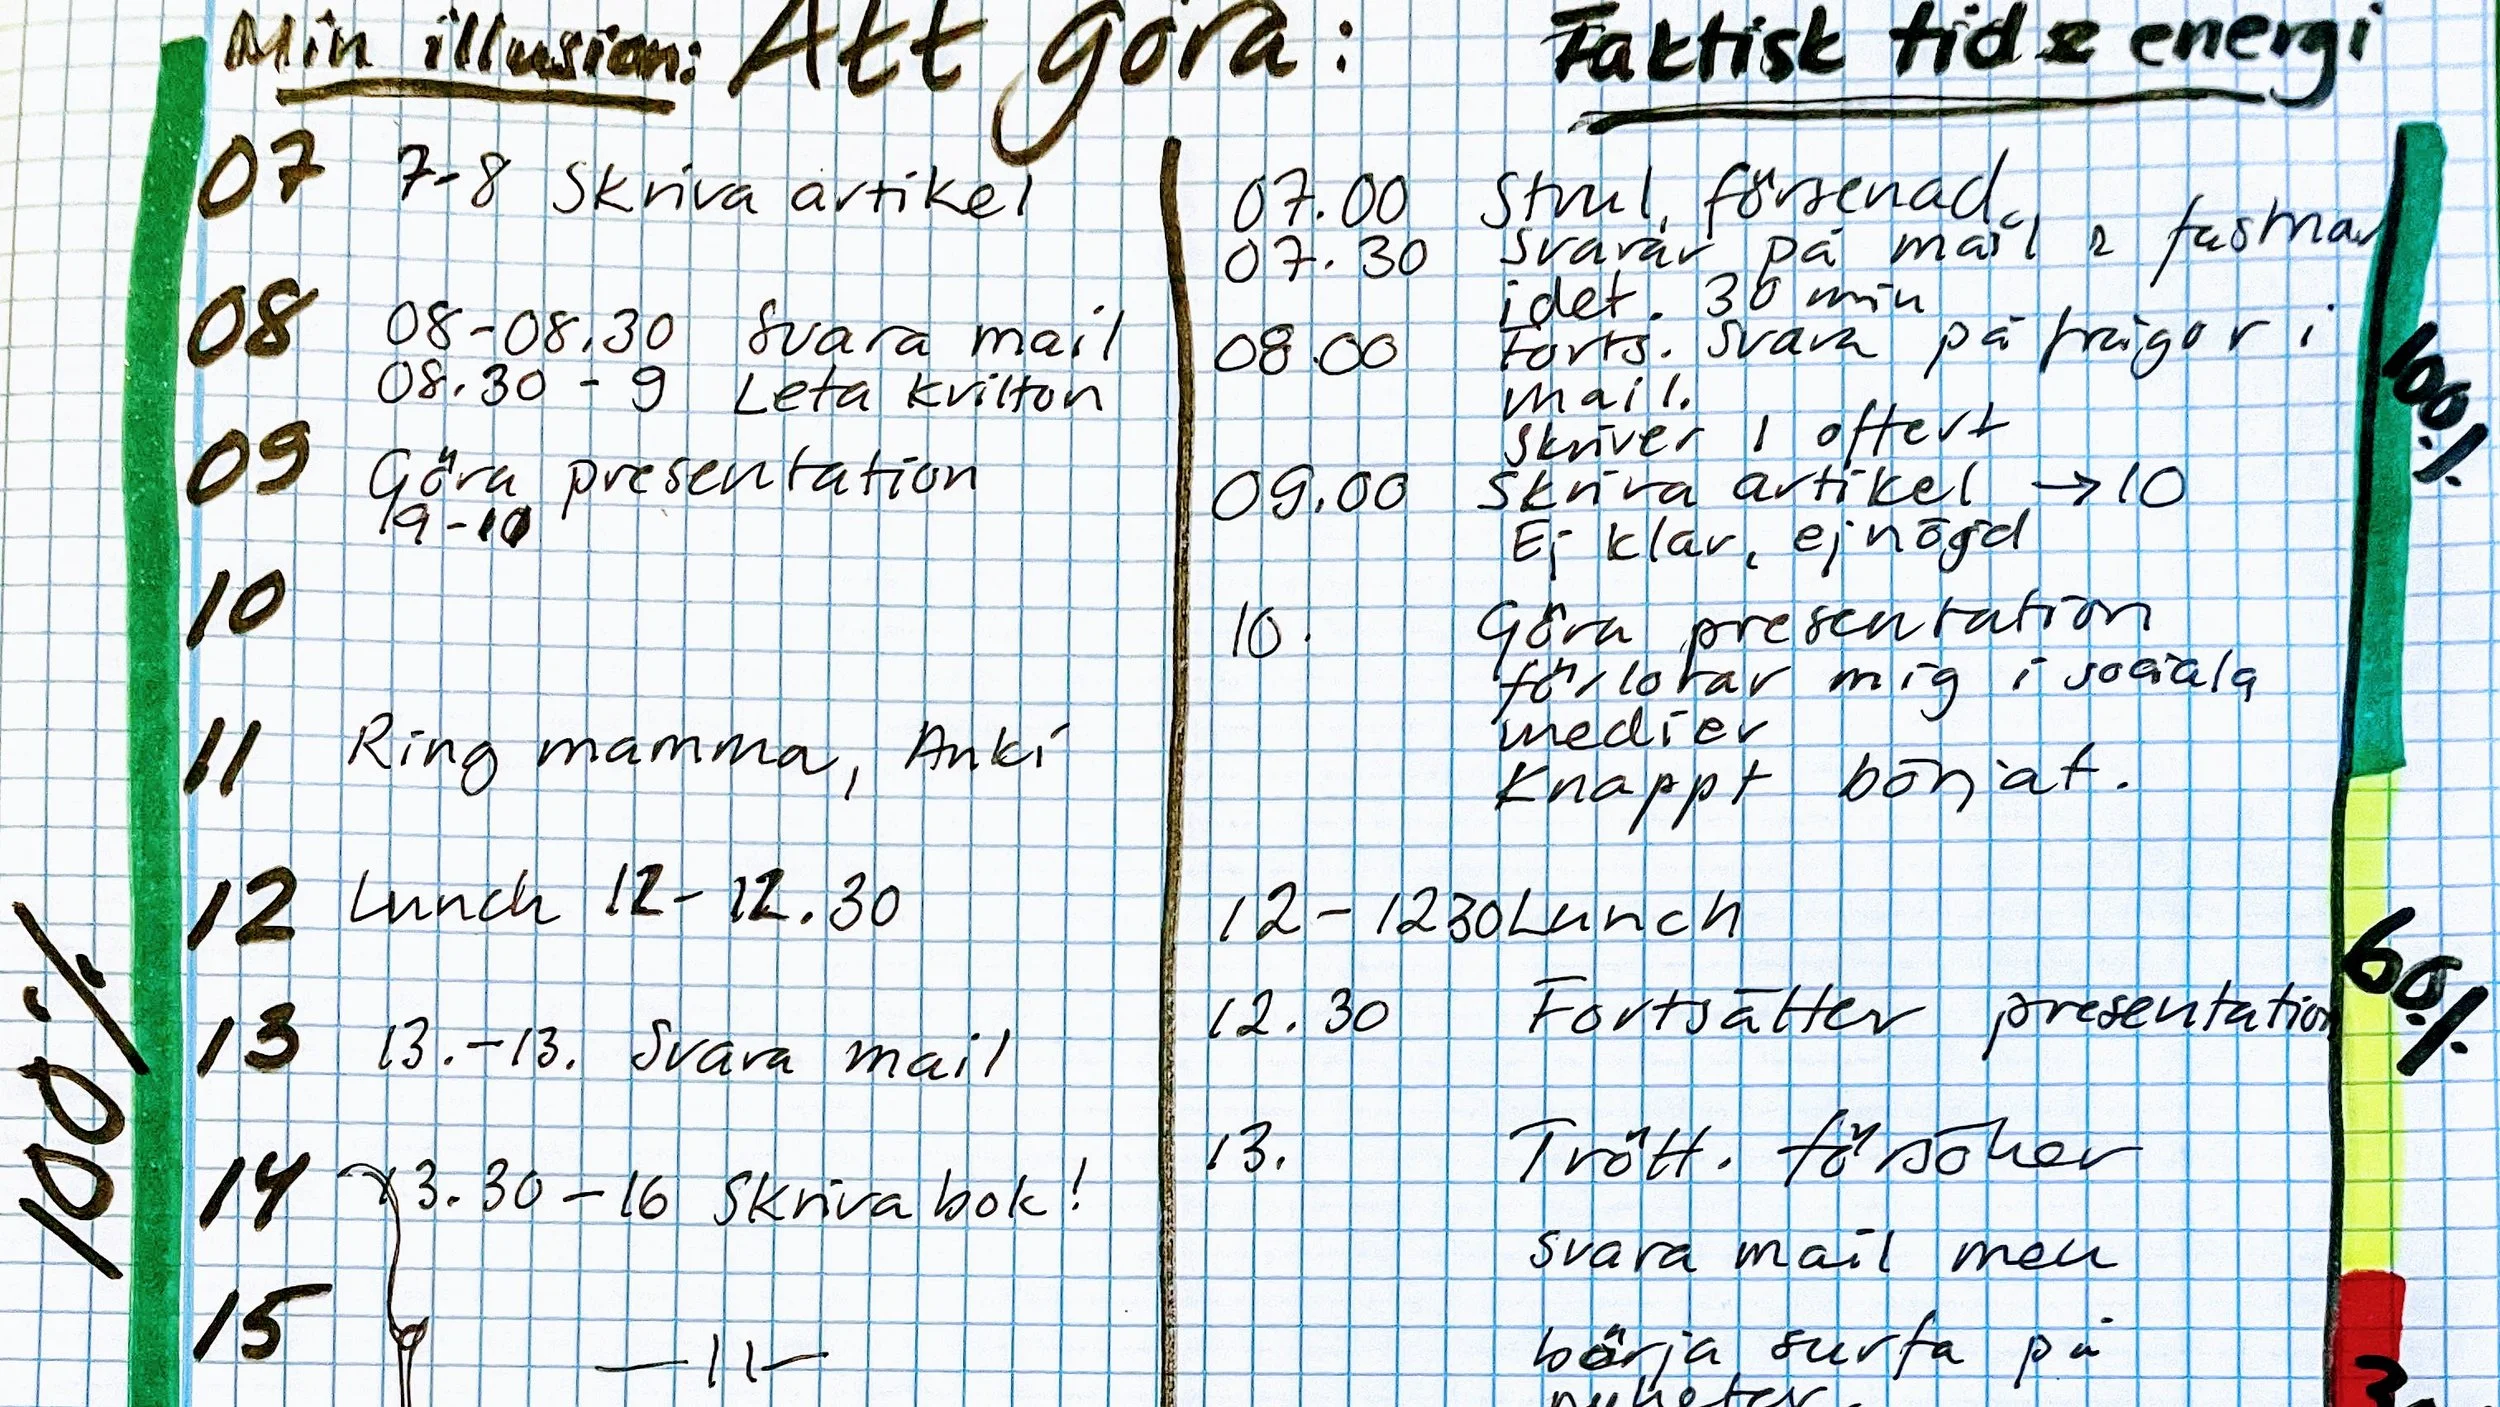 Min illusion: Att göra:
07 7-8 Skriva artikel
08 08-08.30 Svara mail
08.30 - 9 Leta kvitton
09 Göra presentation
9-10
10
11 Ring mamma, Anki
12 Lunch 12-12.30
13 13.-13. Svara mail
14 13.30-16 Skriva bok!
15 —11—
100%
Faktisk tid & energi
07.00 Strul, försenad,
07.30 Svarar på mail & fastnar
i det. 30 min
08.00 Forts. svara på frågor i
mail.
Skriver 1 offert
09.00 Skriva artikel → 10
Ej klar, ej nöjd
10. Göra presentation
förlorar mig i sociala
medier
Knappt börjat.
12-1230 Lunch
12.30 Fortsätter presentation
13. Trött. försöker
svara mail men
börja surfa på
nyheter.
100%
60%